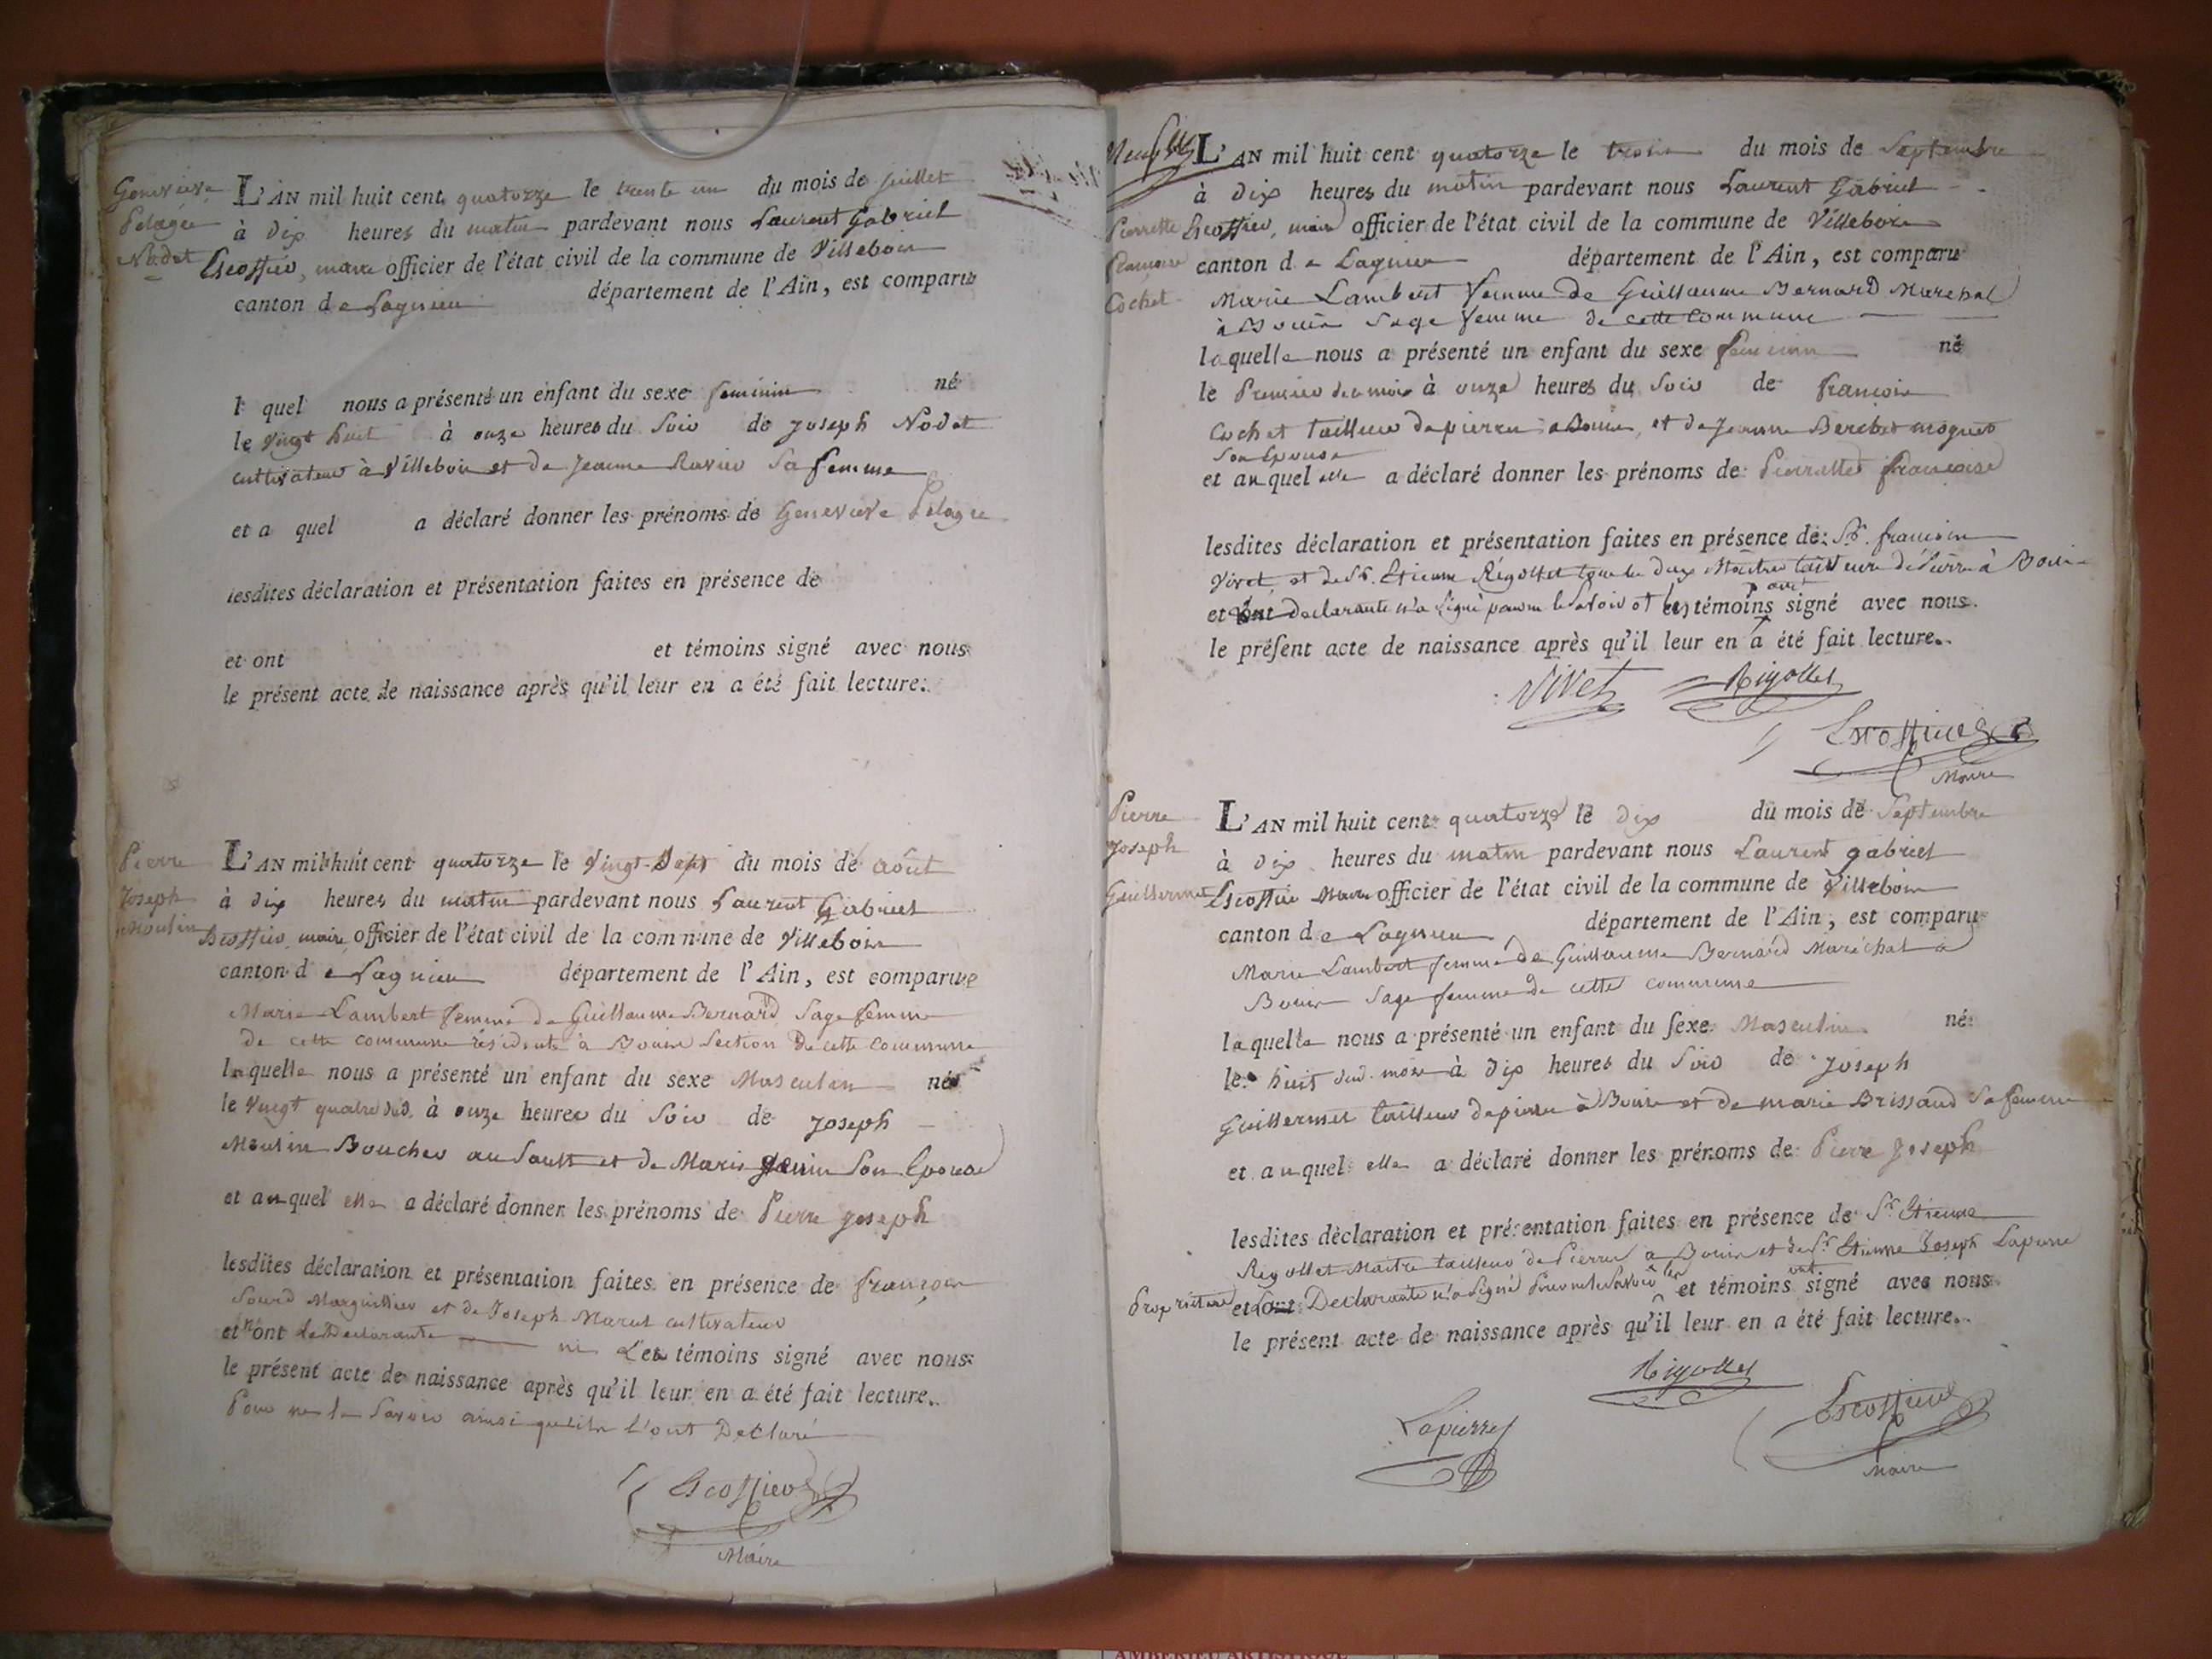 Genevieve
Pelagie
Nodet
L'AN mil huit cent quatorze le trente un du mois de juillet
à dix heures du matin pardevant nous Laurent Gabriel
Escoffier, maire officier de l'état civil de la commune de Villebois
canton de Lagnieu département de l'Ain, est comparu
l quel nous a présenté un enfant du sexe feminin né
le vingt huit à onze heures du soir de Joseph Nodet
cultivateur à Villebois et de Jeanne Ravier sa femme
et a quel a déclaré donner les prénoms de Genevieve Pelagie
lesdites déclaration et présentation faites en présence de
et ont et témoins signé avec nous
le présent acte de naissance après qu'il leur en a été fait lecture.
Pierre
Joseph
Moulin
L'AN mil huit cent quatorze le vingt-sept du mois de août
à dix heures du matin pardevant nous Laurent Gabriel
Escoffier, maire officier de l'état civil de la commune de Villebois
canton de Lagnieu département de l'Ain, est comparue
Marie Lambert femme de Guillaume Bernard sage femme
de cette commune résidente à Bouis section de cette commune
laquelle nous a présenté un enfant du sexe Masculin né
le vingt quatre dud. à onze heures du soir de Joseph
Moulin Boucher au Sault et de Marie son Epouse
et auquel elle a déclaré donner les prénoms de Pierre Joseph
lesdites déclaration et présentation faites en présence de françois
Sourd Marguillier et de Joseph Marut cultivateur
et n'ont la Declarante ni Les témoins signé avec nous
le présent acte de naissance après qu'il leur en a été fait lecture.
Pour ne le savoir ainsi qu'ils l'ont Declaré
Escoffier
Maire
Pierrette
Francoise
Cochet
L'AN mil huit cent quatorze le trois du mois de Septembre
à dix heures du matin pardevant nous Laurent Gabriel
Escoffier, maire officier de l'état civil de la commune de Villebois
canton de Lagnieu département de l'Ain, est comparu
Marie Lambert femme de Guillaume Bernard Marechal
à Bouis sage femme de cette commune
laquelle nous a présenté un enfant du sexe feminin né
le Premier du mois à onze heures du soir de françois
Cochet tailleur de pierre à Bouis, et de Jeanne Berchet
son Epouse
et auquel elle a déclaré donner les prénoms de Pierrette françoise
lesdites déclaration et présentation faites en présence de Sr. françois
Vivet et de Sr. Etienne Rigollet tous les deux Maitres tailleurs de Pierre à Bouis
et ont declarante n'a signé pour ne le savoir et les témoins ont signé avec nous.
le présent acte de naissance après qu'il leur en a été fait lecture.
Vivet Rigollet
Escoffier
Maire
Pierre
Joseph
Guillermet
L'AN mil huit cent quatorze le dix du mois de Septembre
à dix heures du matin pardevant nous Laurent gabriel
Escoffier Maire officier de l'état civil de la commune de Villebois
canton de Lagnieu, département de l'Ain, est comparu
Marie Lambert femme de Guillaume Bernard Maréchal a
Bouis sage femme de cette commune
laquelle nous a présenté un enfant du sexe Masculin né
le huit dud. mois à dix heures du soir de Joseph
Guillermet tailleur de pierre à Bouis et de marie Brissaud sa femme
et auquel elle a déclaré donner les prénoms de Pierre Joseph
lesdites déclaration et présentation faites en présence de Sr. Etienne
Rigollet Maitre tailleur de Pierre a Bouis et de Sr. Etienne Joseph Lapierre
Proprietaire et ont Declarante n'a signé Pour ne le savoir les et témoins ont signé avec nous
le présent acte de naissance après qu'il leur en a été fait lecture.
Rigollet
Lapierre Escoffier
Maire